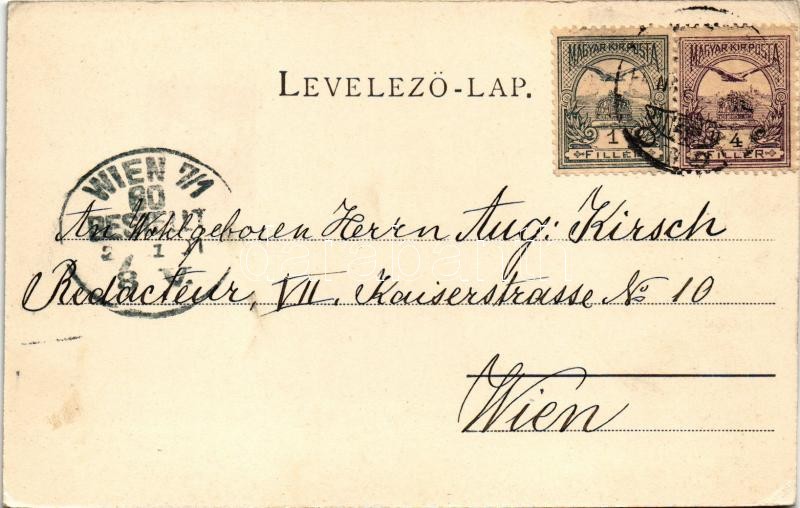 LEVELEZŐ-LAP.
MAGYAR KIR. POSTA
1
FILLÉR
MAGYAR KIR. POSTA
4
FILLÉR
WIEN 7/1
An Wohlgeboren Herrn Aug: Kirsch
Redacteur, VII. Kaiserstrasse No 10
Wien